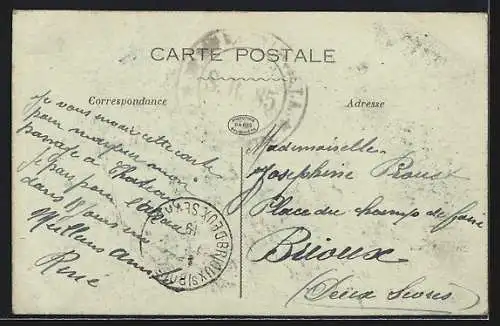 CARTE POSTALE
Correspondance
Adresse
Je vous envoie cette carte
pour marquer mon
passage à Chateau
Je pars pour
dans 11 jours
Meilleurs
René
Mademoiselle
Josephine Proust
Place du champ de foire
Brioux
(Deux Sevres)